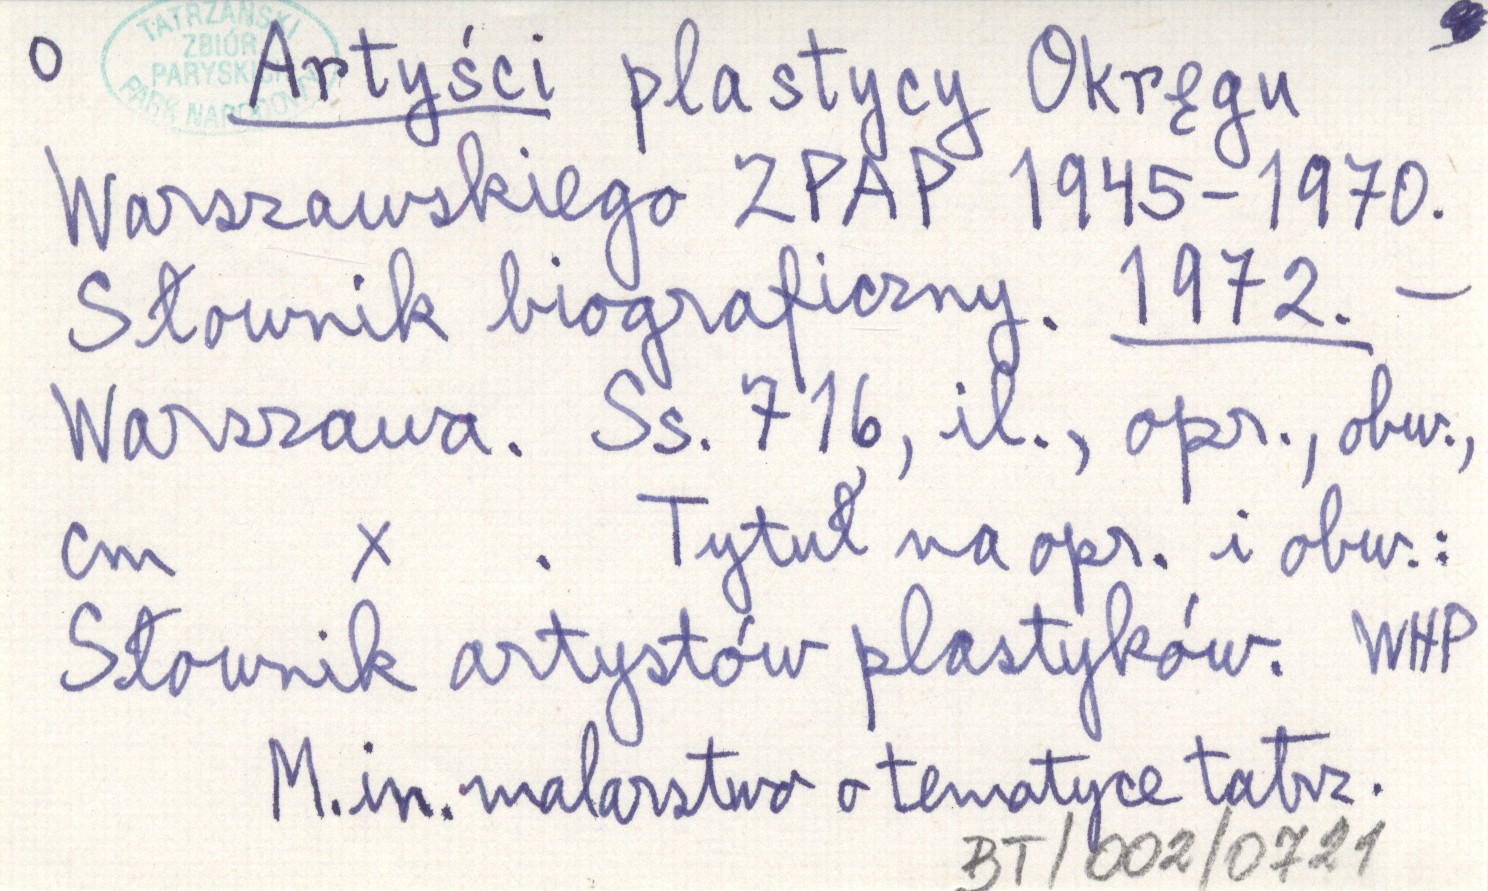 TATRZAŃSKI
ZBIÓR
PARYSKICH
PARK NARODOWY
o Artyści plastycy Okręgu
Warszawskiego ZPAP 1945-1970.
Słownik biograficzny. 1972. –
Warszawa. Ss. 716, il., opr., obw.,
cm x . Tytuł na opr. i obw.:
Słownik artystów plastyków. WHP
M.in. malarstwo o tematyce tatrz.
BT/002/0721